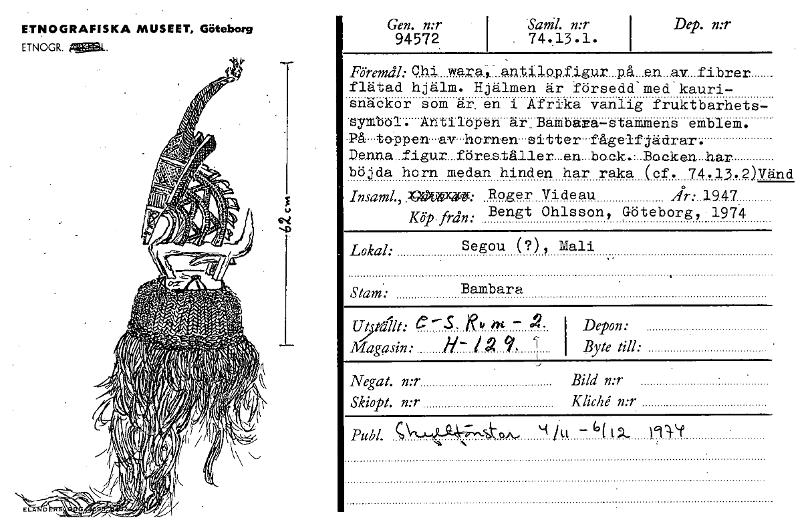 ETNOGRAFISKA MUSEET, Göteborg
ETNOGR.
Gen. n:r Saml. n:r Dep. n:r
94572 74.13.1.
Föremål: Chi wara, antilopfigur på en av fibrer
flätad hjälm. Hjälmen är försedd med kauri-
snäckor som är en i Afrika vanlig fruktbarhets-
symbol. Antilopen är Bambara-stammens emblem.
På toppen av hornen sitter fågelfjädrar.
Denna figur föreställer en bock. Bocken har
böjda horn medan hinden har raka (cf. 74.13.2)Vänd
Insaml., Roger Videau År: 1947
Köp från: Bengt Ohlsson, Göteborg, 1974
Lokal: Segou (?), Mali
Stam: Bambara
Utställt: E-S. Rum-2. Depon:
Magasin: H-129. Byte till:
Negat. n:r Bild n:r
Skiopt. n:r Kliché n:r
Publ. Skyltfönster 4/11 - 6/12 1974
62 cm